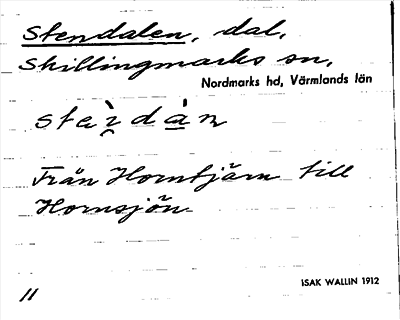 Stendalen, dal,
Skillingmarks sn,
Nordmarks hd, Värmlands län
Från Horntjärn till
Hornsjön.
ISAK WALLIN 1912
11